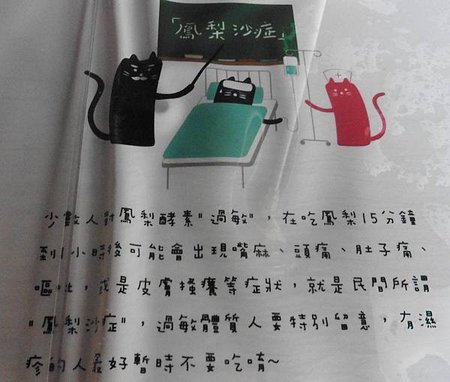 「鳳梨沙症」
少數人對鳳梨酵素"過敏"，在吃鳳梨15分鐘
到1小時後可能會出現嘴麻、頭痛、肚子痛、
嘔吐，或是皮膚搔癢等症狀，就是民間所謂
"鳳梨沙症"，過敏體質人要特別留意，有濕
疹的人最好暫時不要吃唷~